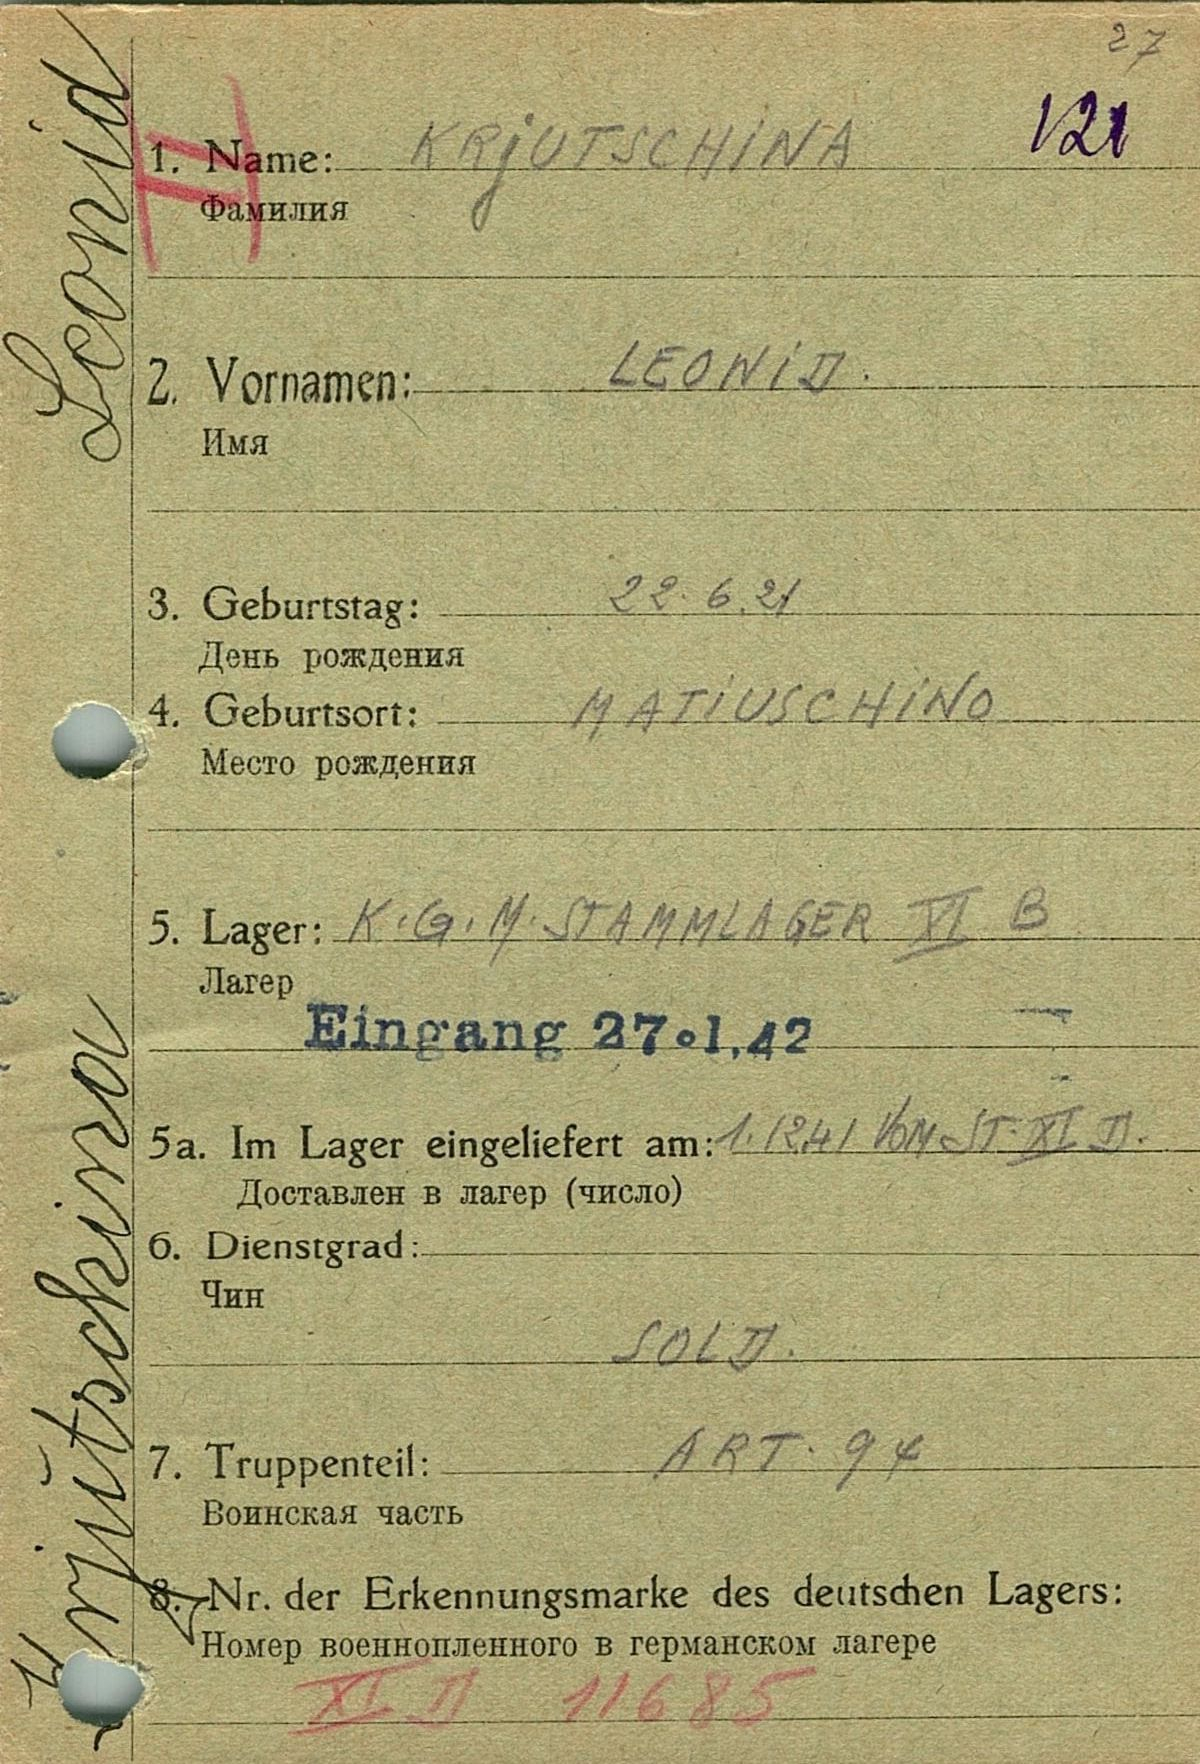 27
121
1. Name: KRjUTSCHiNA
Фамилия
II
2. Vornamen: LEONiD.
Имя
3. Geburtstag: 22.6.21
День рождения
4. Geburtsort: MATiUSCHiNO
Место рождения
5. Lager: K.G.M. STAMMLAGER XI B
Лагер
Eingang 27.1.42
5a. Im Lager eingeliefert am: 1.12.41 VOM ST. XI D.
Доставлен в лагер (число)
6. Dienstgrad:
Чин
SOLD.
7. Truppenteil: ART. 94
Воинская часть
8. Nr. der Erkennungsmarke des deutschen Lagers:
Номер военнопленного в германском лагере
XI D 11685
Krjutschina Leonid